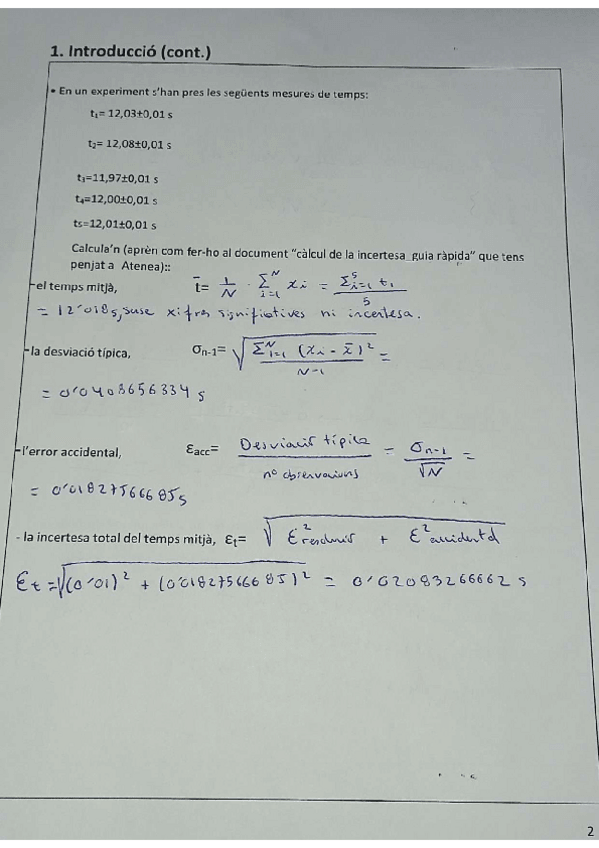 1. Introducció (cont.)
• En un experiment s'han pres les següents mesures de temps:
t₁= 12,03±0,01 s
t₂= 12,08±0,01 s
t₃=11,97±0,01 s
t₄=12,00±0,01 s
t5=12,01±0,01 s
Calcula'n (aprèn com fer-ho al document "càlcul de la incertesa_guia ràpida" que tens
penjat a Atenea)::
-el temps mitjà, t̄= 1/N · Σᴺᵢ₌₁ xᵢ = Σ⁵ᵢ₌₁ tᵢ / 5
= 12'018s, suse xifres significatives ni incertesa.
-la desviació típica, σₙ₋₁= √(Σᴺᵢ₌₁ (xᵢ - x̄)² / N-1) =
= 0'0408656334 s
-l'error accidental, εacc= Desviació típica / nº observacions = σₙ₋₁ / √N =
= 0'01827566685s
- la incertesa total del temps mitjà, εt= √(ε² + ε²accidental)
εt =√((0'01)² + (0'01827566685)²) = 0'02083266662 s
2